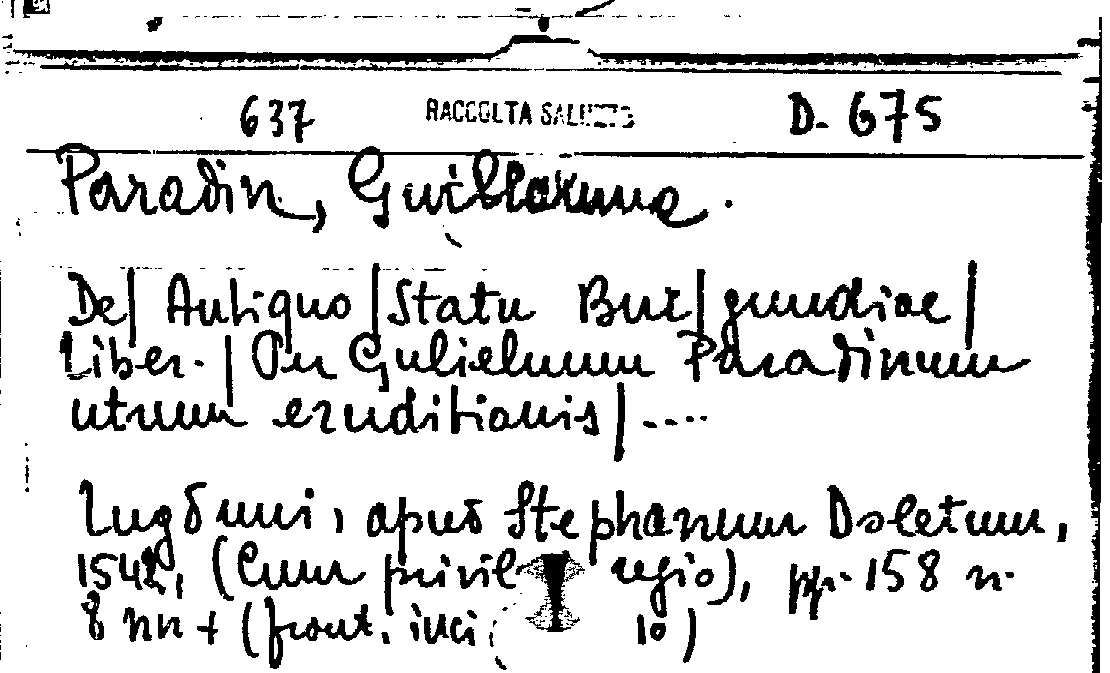 637 RACCOLTA SALUZZO D. 675
Paradin, Guillaume.
De| Antiquo |Statu Bur|gundiae|
Liber.| Per Gulielmum Paradinum
utrum eruditionis| ....
Lugduni, apud Stephanum Doletum,
1542, (Cum privil regio), pp. 158 n.
8 nn + (front. inci 10)